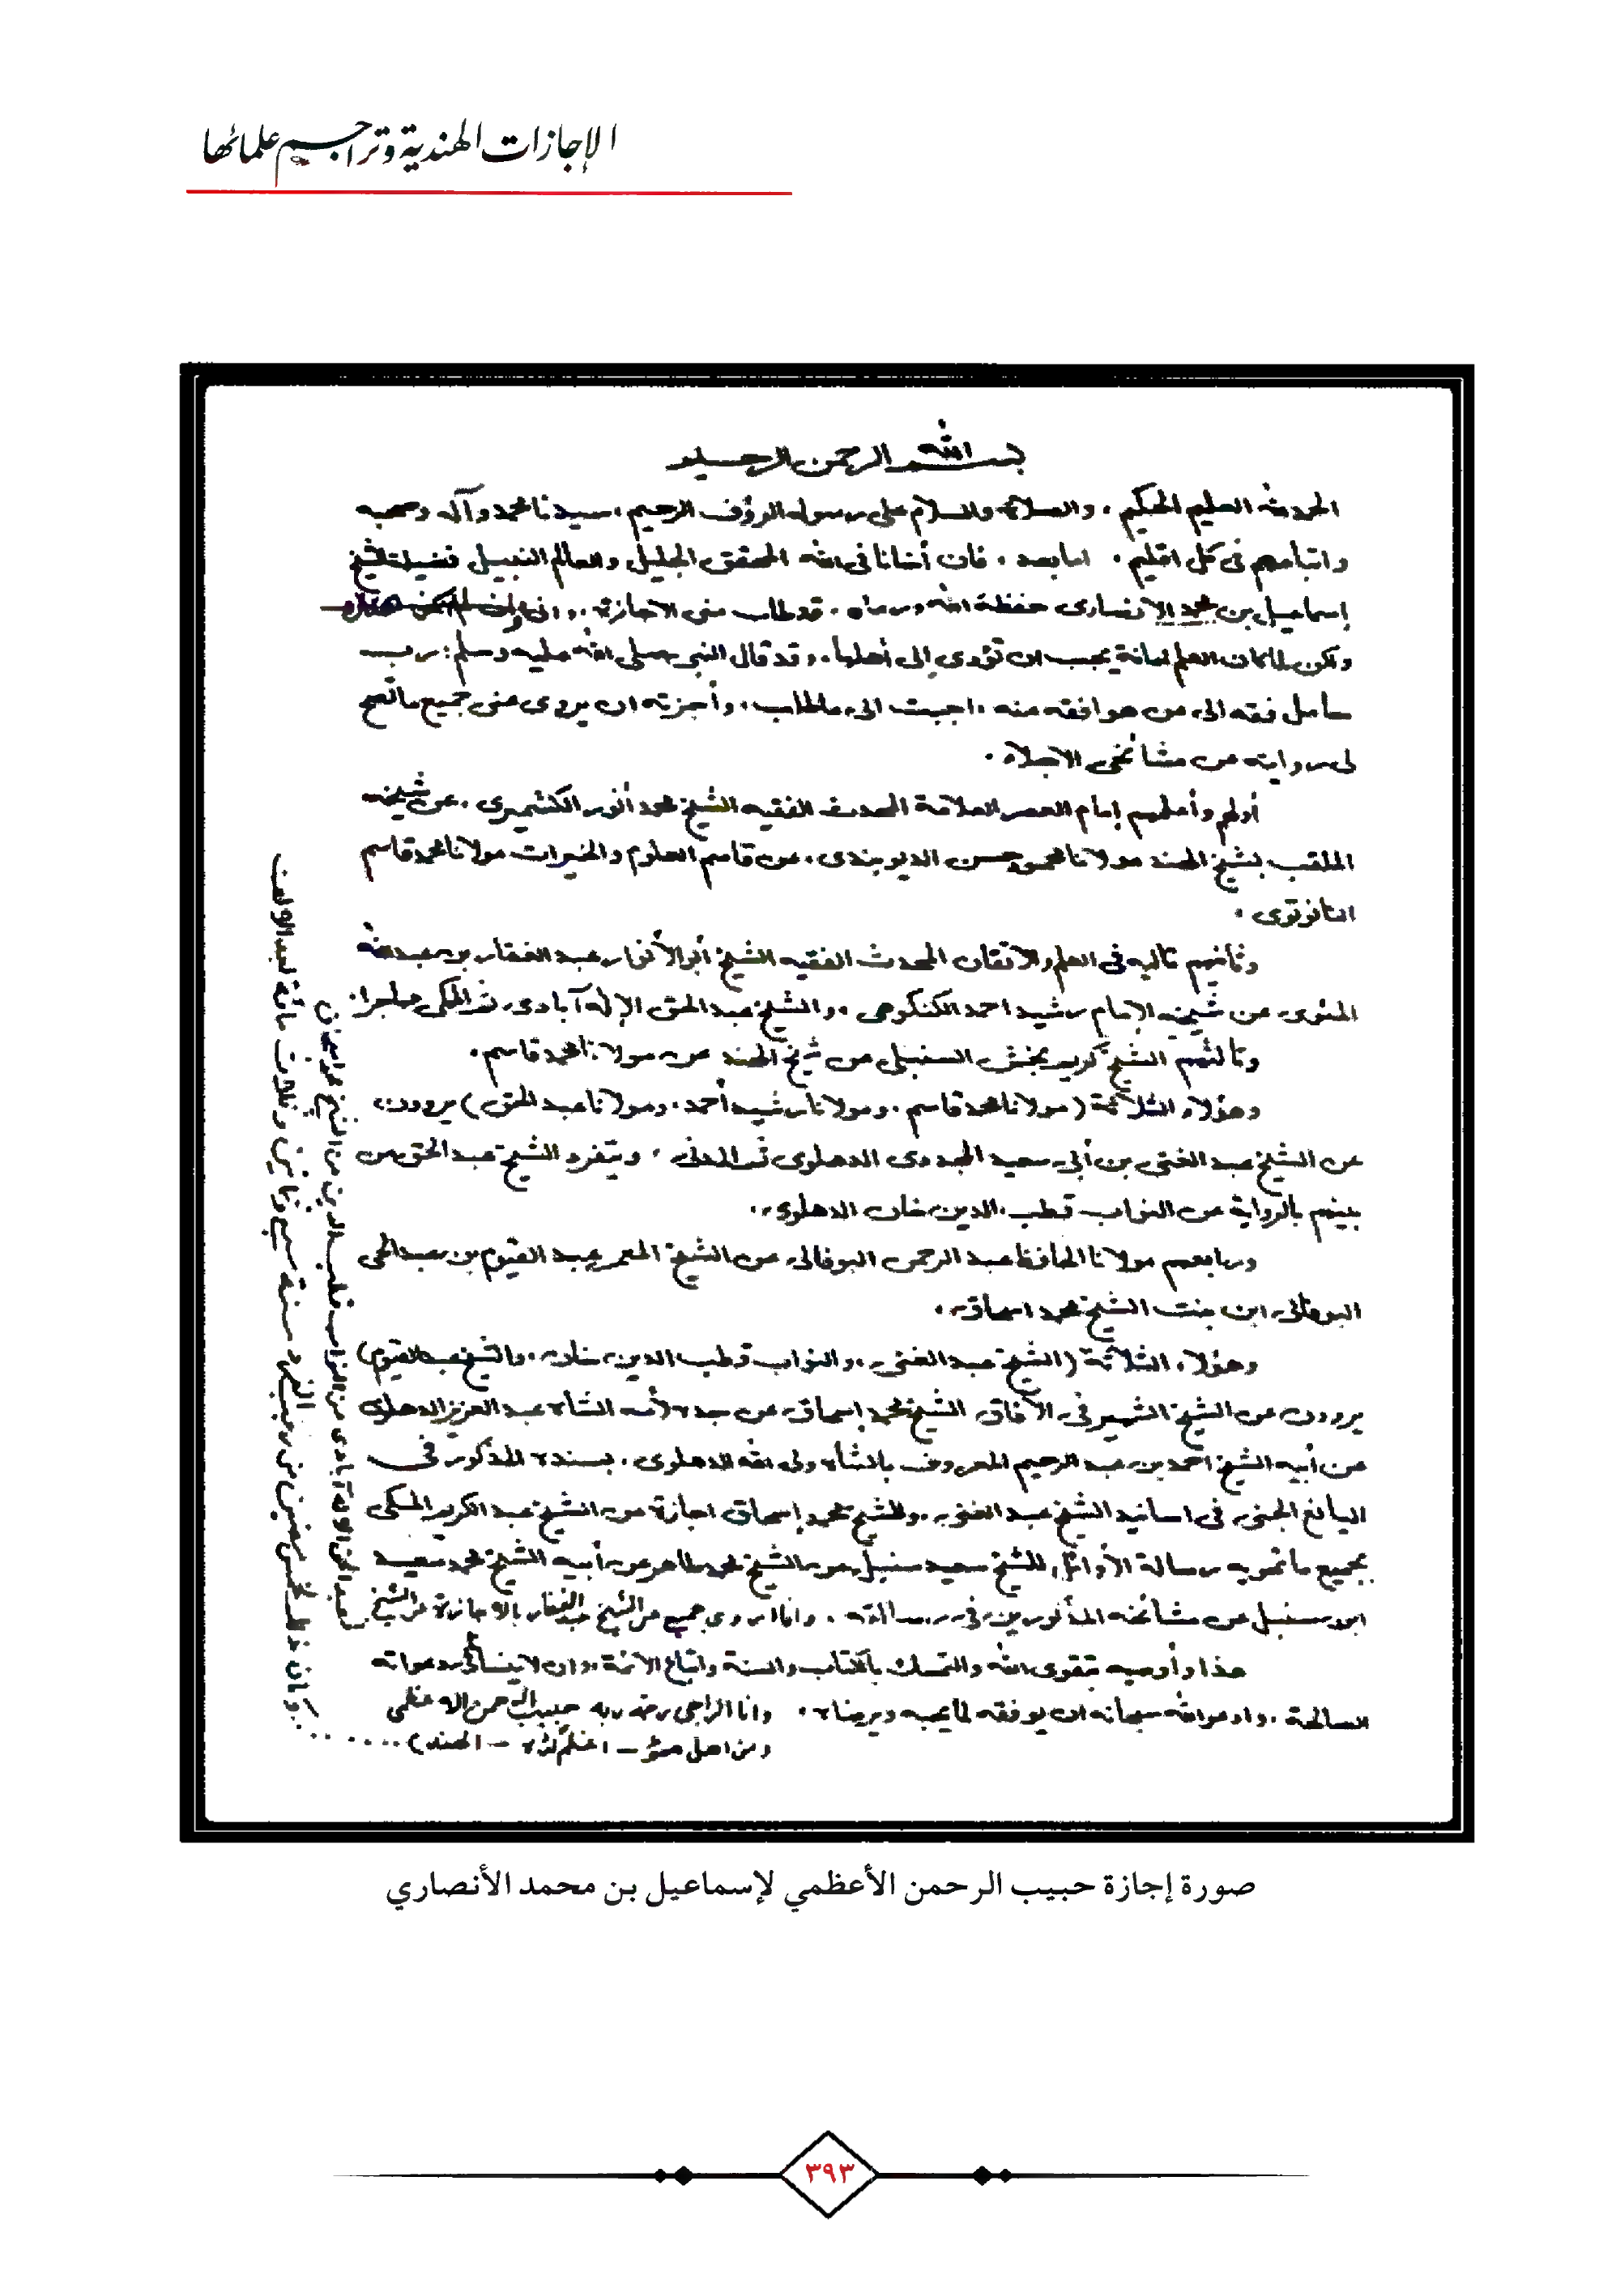 الإجازات الهندية وتراجم علمائها
بسم الله الرحمن الرحيم
الحمد لله العليم الحكيم ، والصلاة والسلام على رسوله الرؤف الرحيم ، سيدنا محمد وآله وصحبه
واتباعهم فى كل اقليم ، اما بعد ، فان أخانا فى الله المحقق الجليل والعالم النبيل فضيلة الشيخ
إسماعيل بن محمد الانصارى حفظه الله ورعاه ، قد طلب منى الاجازة ، وانى وإن لم اكن هنالك
ولكن لما كان العلم امانة يجب ان تؤدى إلى أهلها ، وقد قال النبى صلى الله عليه وسلم : رب
حامل فقه الى من هو افقه منه ، اجبت الى ما طلب ، وأجزته ان يروى عنى جميع ما تصح
لى روايته من مشائخى الاجلاء ،
أولهم وأعلمهم إمام العصر العلامة المحدث الفقيه الشيخ محمد أنور الكشميرى ، عن شيخه
الملقب بشيخ الهند مولانا محمود حسن الديوبندى ، عن قاسم العلوم والخيرات مولانا محمد قاسم
النانوتوى ،
وثانيهم تاليه فى العلم والاتقان المحدث الفقيه الشيخ أبو الأنوار عبد الغفار بن عبد الله
المئوى عن شيخه الإمام رشيد احمد الكنكوهى ، والشيخ عبد الحق الإله آبادى ثم المكى مهاجرا ،
وثالثهم الشيخ كريم بخش السنبلى عن شيخ الهند عن مولانا محمد قاسم ،
وهؤلاء الثلاثة (مولانا محمد قاسم ، ومولانا رشيد أحمد ، ومولانا عبد الحق) يروون
عن الشيخ عبد الغنى بن أبى سعيد المجددى الدهلوى ثم المدنى ، ويتفرد الشيخ عبد الحق من
بينهم بالرواية عن النواب قطب الدين خان الدهلوى ،
ورابعهم مولانا الحافظ عبد الرحمن البوفالى عن الشيخ المعمر عبد القيوم بن عبد الحى
البوفالى ابن بنت الشيخ محمد اسحاق ،
وهؤلاء الثلاثة (الشيخ عبد الغنى ، والنواب قطب الدين خان ، والشيخ عبد القيوم)
يروون عن الشيخ الشهير فى الآفاق الشيخ محمد إسحاق عن جده لأمه الشاه عبد العزيز الدهلوى
عن أبيه الشيخ احمد بن عبد الرحيم المعروف بالشاه ولى الله الدهلوى ، بسنده المذكور فى
اليانع الجنى فى اسانيد الشيخ عبد الغنى ، وللشيخ محمد إسحاق اجازة عن الشيخ عبد الكريم المكى
بجميع ما تحويه رسالة الأوائل للشيخ سعيد سنبل عن الشيخ محمد طاهر عن أبيه الشيخ محمد سعيد
ابن سنبل عن مشائخه المذكورين فى رسالته ، وانا اروى جميع عن الشيخ عبد الغفار بالاجازة عن الشيخ
عبد الحق الإله آبادى عن النواب قطب الدين عن الشيخ محمد إسحاق
هذا وأوصيه بتقوى الله والتمسك بالكتاب والسنة واتباع الائمة ، وان لا ينسانى دعواته
الصالحة ، وادعو الله سبحانه ان يوفقه لما يحبه ويرضاه ، وانا الراجى رحمة ربه حبيب الرحمن الاعظمى
(من اهل مئو - اعظم كڈه - الهند)
وكان ذلك لخمس مضين من رجب الفرد سنة سبع وثمانين وثلاث مائة بعد الالف
صورة إجازة حبيب الرحمن الأعظمي لإسماعيل بن محمد الأنصاري
٣٩٣